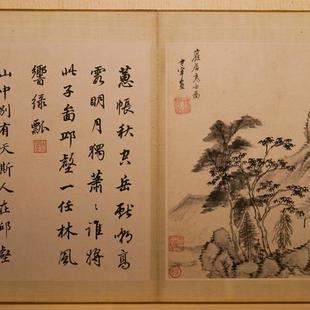 巖居高士圖
蕙帳秋空岳獻嘲高
霞明月獨蕭蕭誰將
此子邱壑一任林風
響綠瓢
山中別有天斯人在邱壑